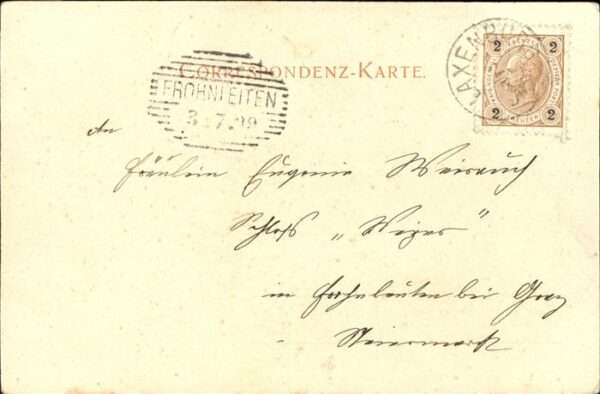 CORRESPONDENZ-KARTE.
LAXENBURG
2 2
2 2
FROHNLEITEN
3.7.99
An
Fräulein Eugenie Weirauch
Schloss „Weyer"
in Frohnleiten bei Graz
Steiermark